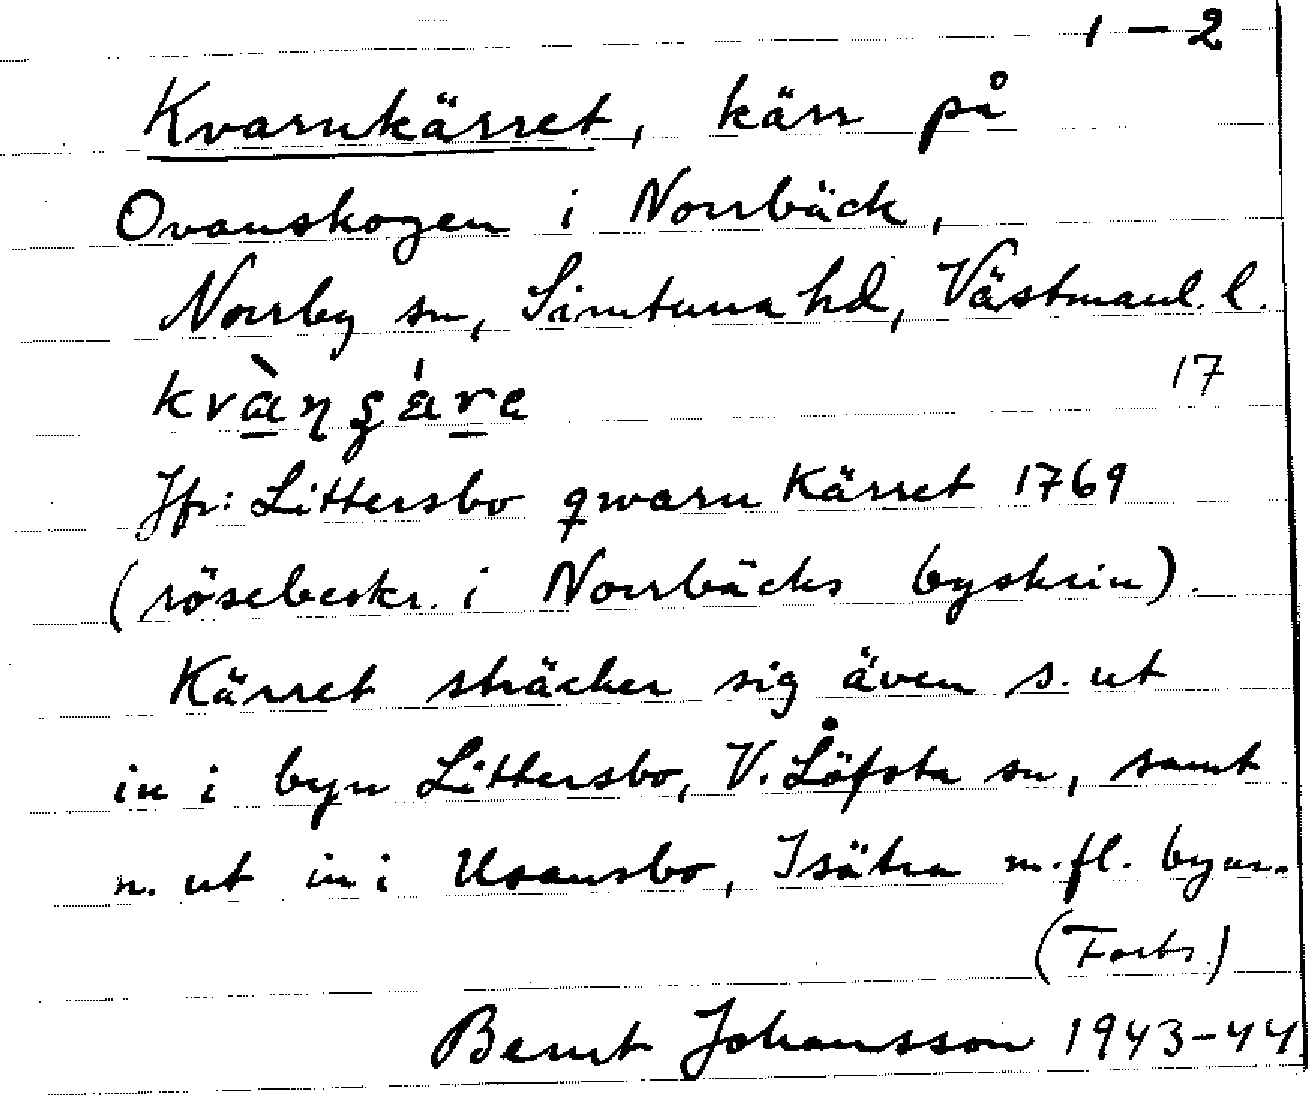 1 – 2
Kvarnkärret, kärr på
Ovanskogen i Norrbäck,
Norrby sn, Simtuna hd, Västmanl. l.
kvàŋʂá̱re 17
Jfr: Littersbo qwarn Kärret 1769
(rösebeskr. i Norrbäcks byskrin).
Kärret sträcker sig även s. ut
in i byn Littersbo, V. Löfsta sn, samt
n. ut in i Usansbo, Isätra m.fl. byar.
(Forts.)
Bernt Johansson 1943–44